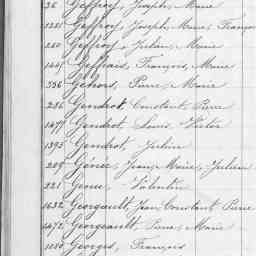 36 Geffroy, Joseph, Marie
1221 Geffroy, Joseph, Marie, François
250 Geffroy, Julien, Marie
1441 Geffrais, François, Marie
356 Gehors, Pierre, Marie
286 Gendrot, Constant, Pierre
1477 Gendrot, Louis, Victor
1395 Gendrot, Julien
289 Génée, Jean, Marie, Julien
221 Genée, Valentin
1632 Georgeault, Jean, Constant, Pierre
1472 Georgeault, Pierre, Marie
1050 Georges, François